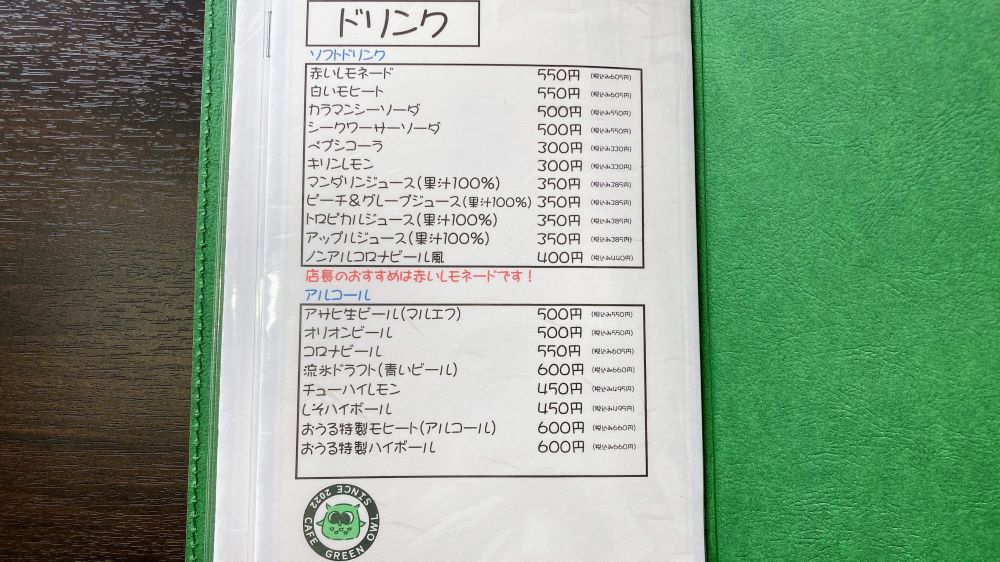 ドリンク
ソフトドリンク
赤いレモネード 550円 (税込み605円)
白いモヒート 550円 (税込み605円)
カラマンシーソーダ 500円 (税込み550円)
シークワーサーソーダ 500円 (税込み550円)
ペプシコーラ 300円 (税込み330円)
キリンレモン 300円 (税込み330円)
マンダリンジュース(果汁100%) 350円 (税込み385円)
ピーチ&グレープジュース(果汁100%) 350円 (税込み385円)
トロピカルジュース(果汁100%) 350円 (税込み385円)
アップルジュース(果汁100%) 350円 (税込み385円)
ノンアルコロナビール風 400円 (税込み440円)
店長のおすすめは赤いレモネードです!
アルコール
アサヒ生ビール(マルエフ) 500円 (税込み550円)
オリオンビール 500円 (税込み550円)
コロナビール 550円 (税込み605円)
流氷ドラフト(青いビール) 600円 (税込み660円)
チューハイレモン 450円 (税込み495円)
しそハイボール 450円 (税込み495円)
おうる特製モヒート(アルコール) 600円 (税込み660円)
おうる特製ハイボール 600円 (税込み660円)
SINCE 2022
CAFE GREEN OWL